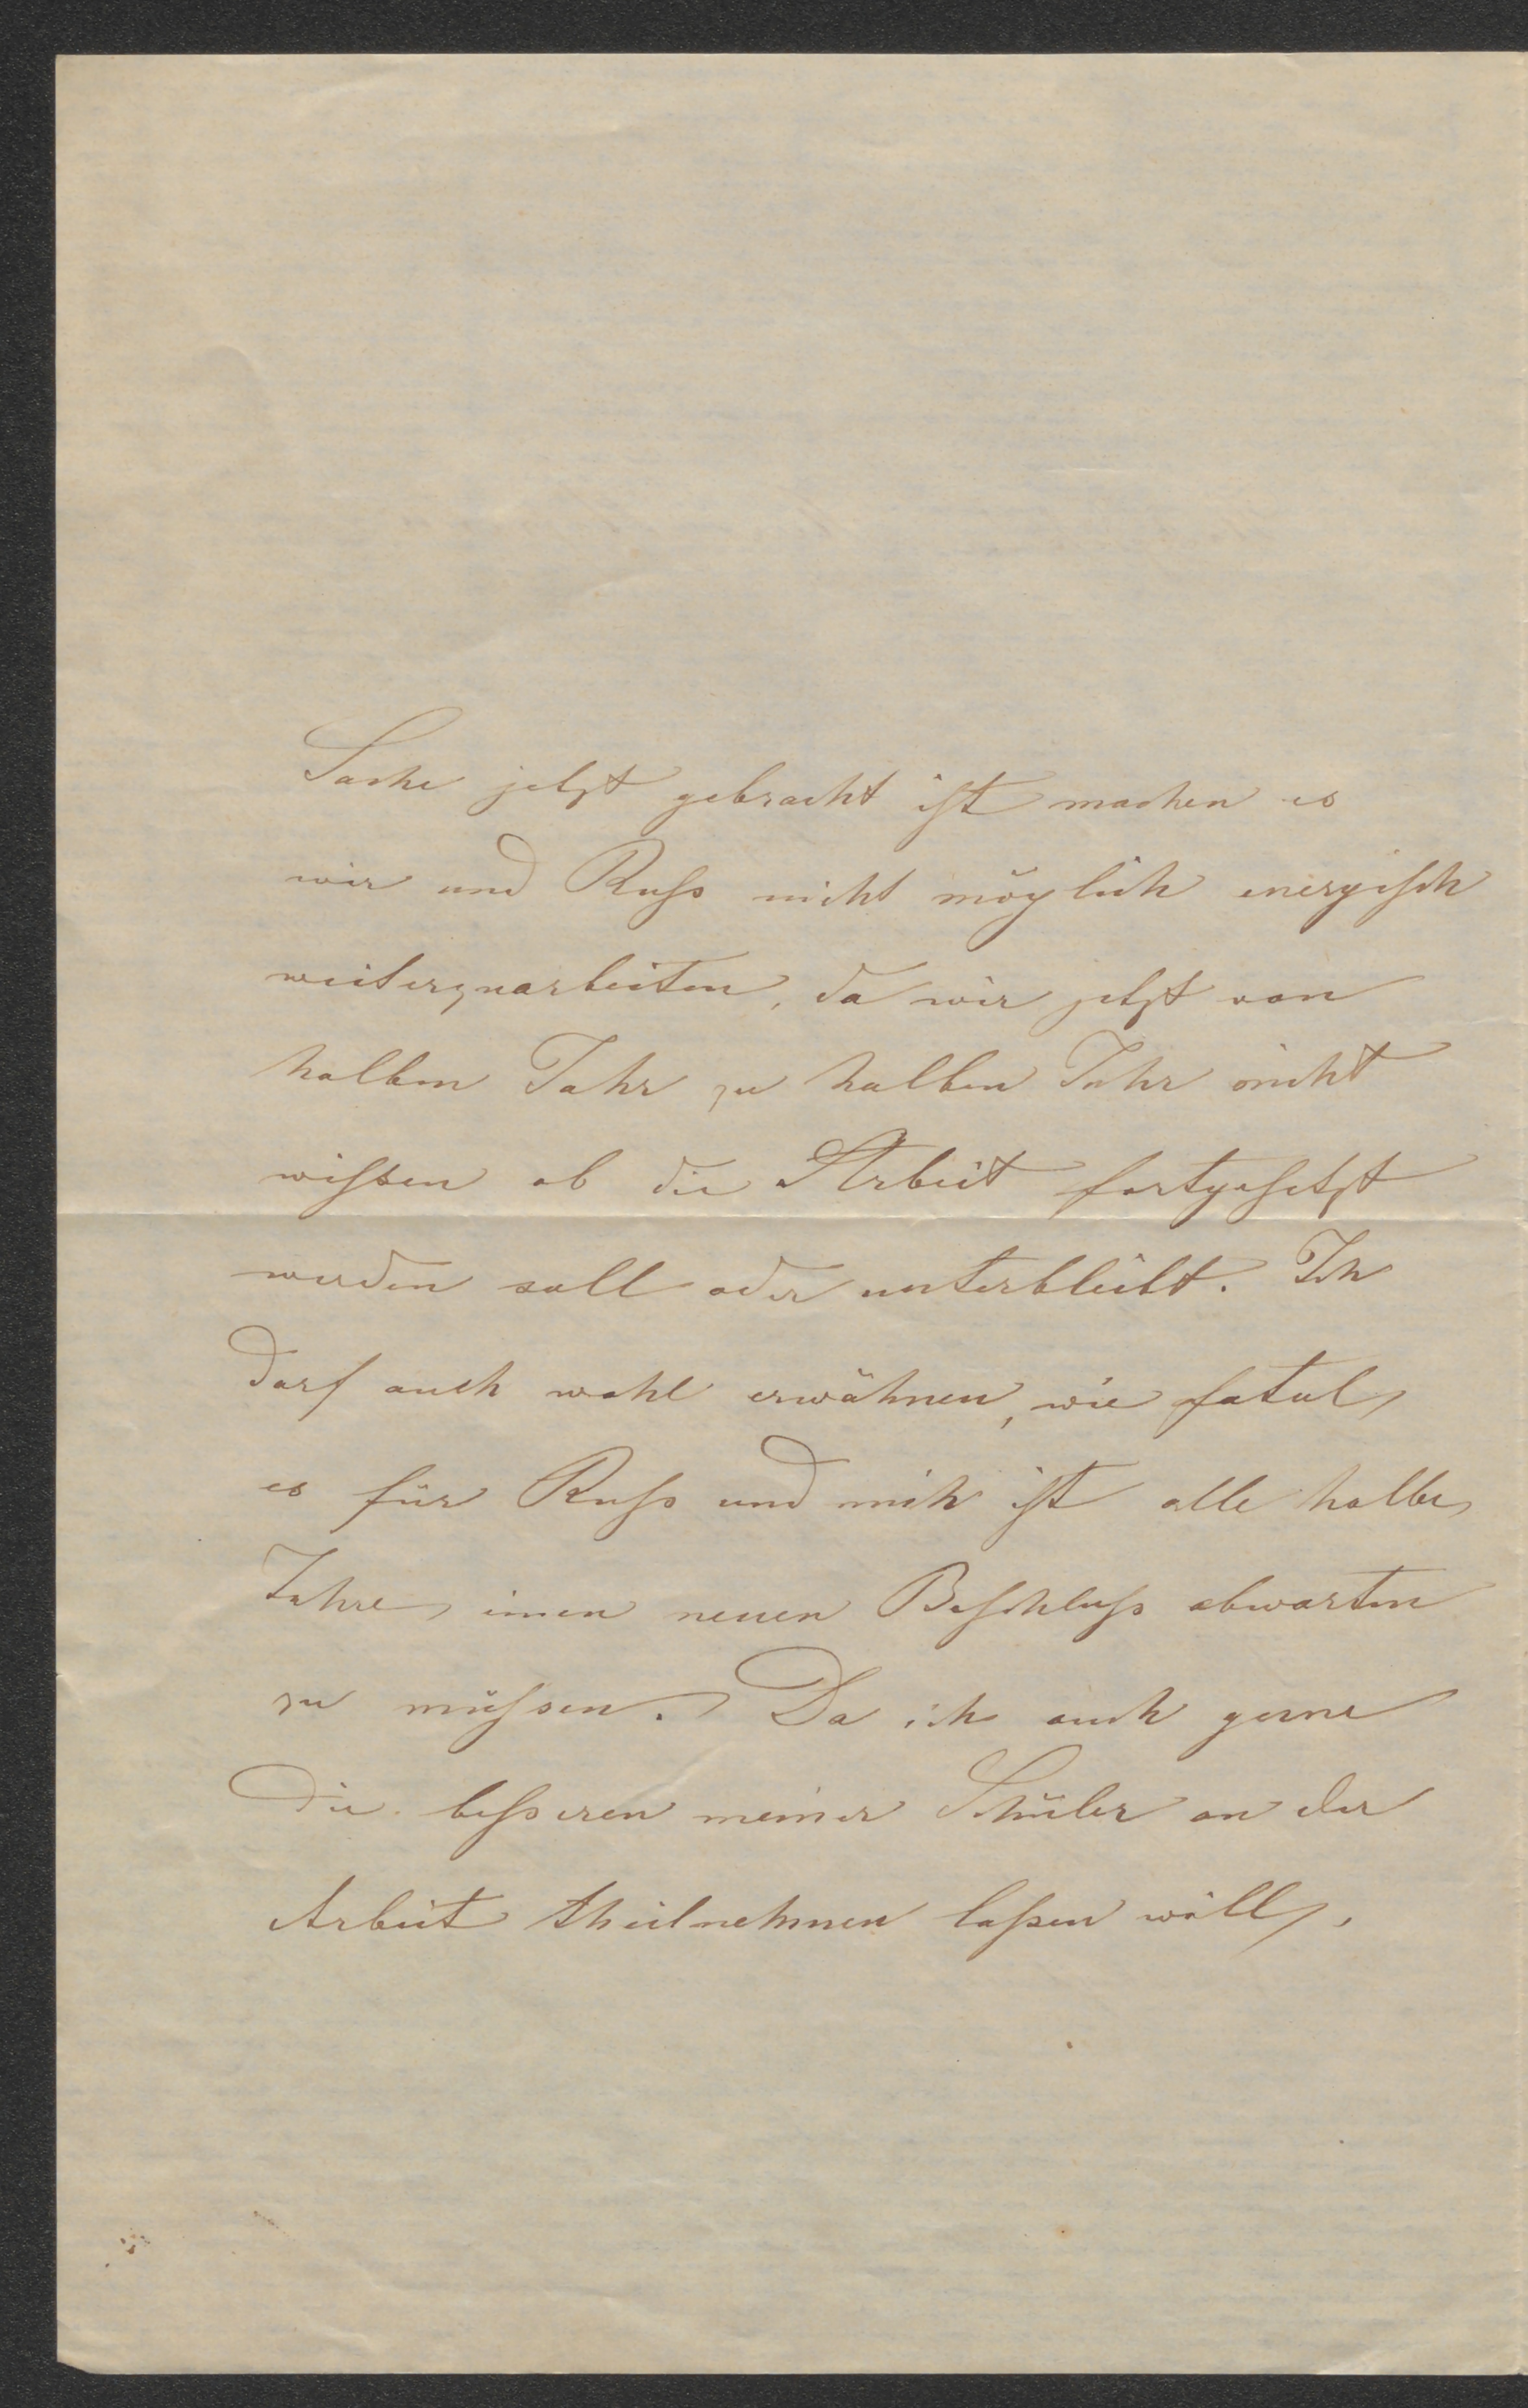 Sache jetzt gebracht ist machen es
wir und Russ nicht möglich energisch
weiterzuarbeiten, da wir jetzt von
halben Jahr zu halben Jahr nicht
wissen ob die Arbeit fortgesetzt
werden soll oder unterbleibt. Ich
darf auch wohl erwähnen, wie fatal
es für Russ und mich ist alle halbe
Jahre einen neuen Beschluss abwarten
zu müssen. Da ich auch gerne
die besseren meiner Schüler an der
Arbeit theilnehmen lassen will,